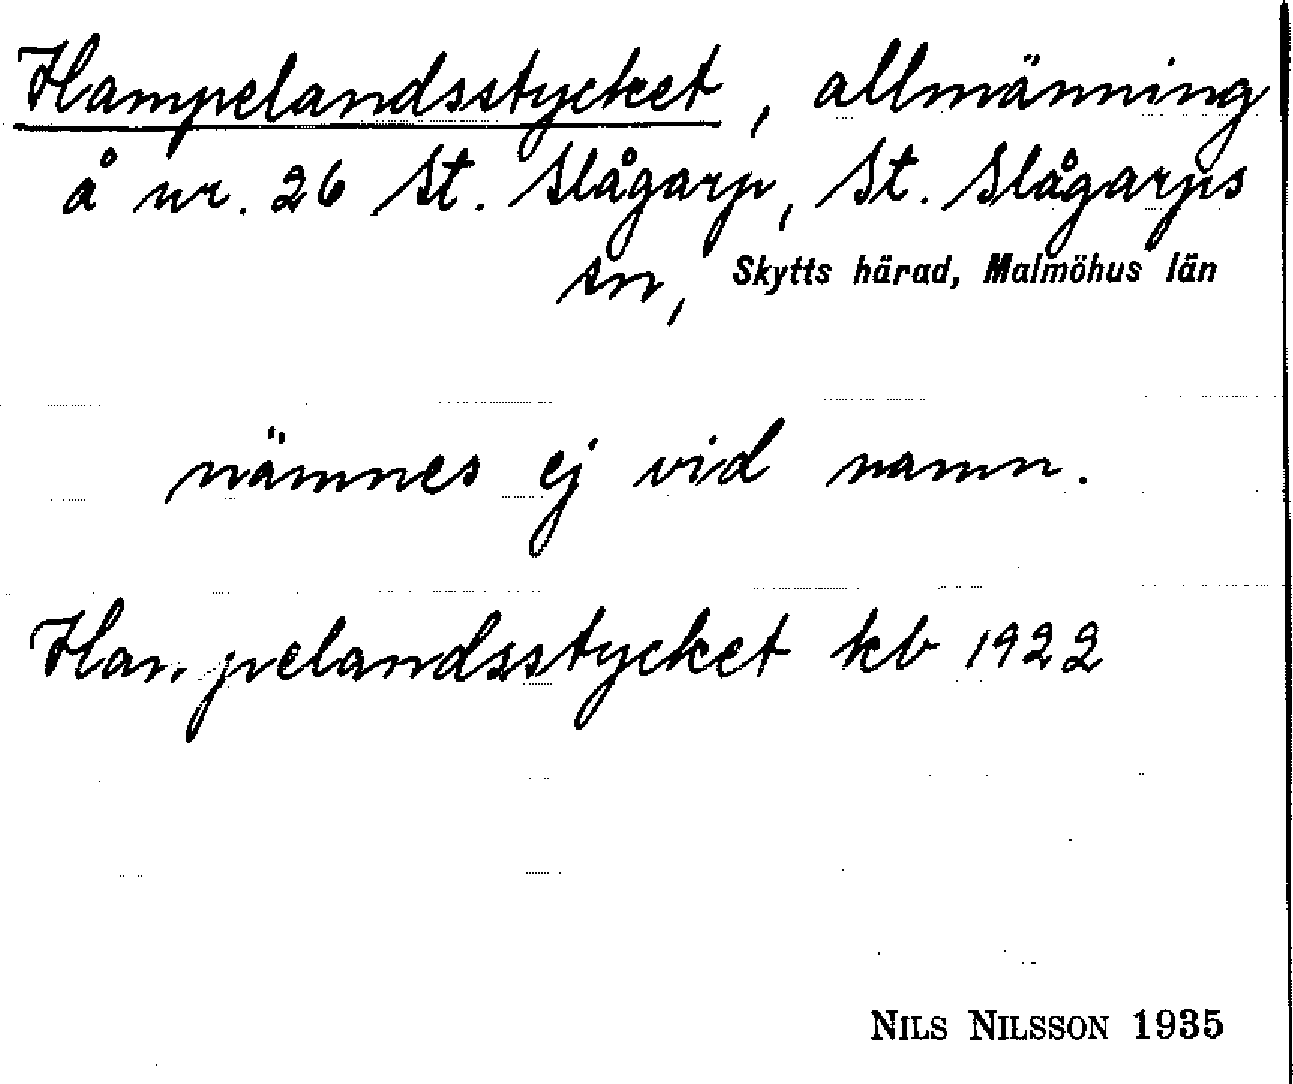 Hampelandsstycket, allmänning
å nr. 26 St. Slågarp, St. Slågarps
sn, Skytts härad, Malmöhus län
nämnes ej vid namn.
Hampelandsstycket kb 1922
NILS NILSSON 1935